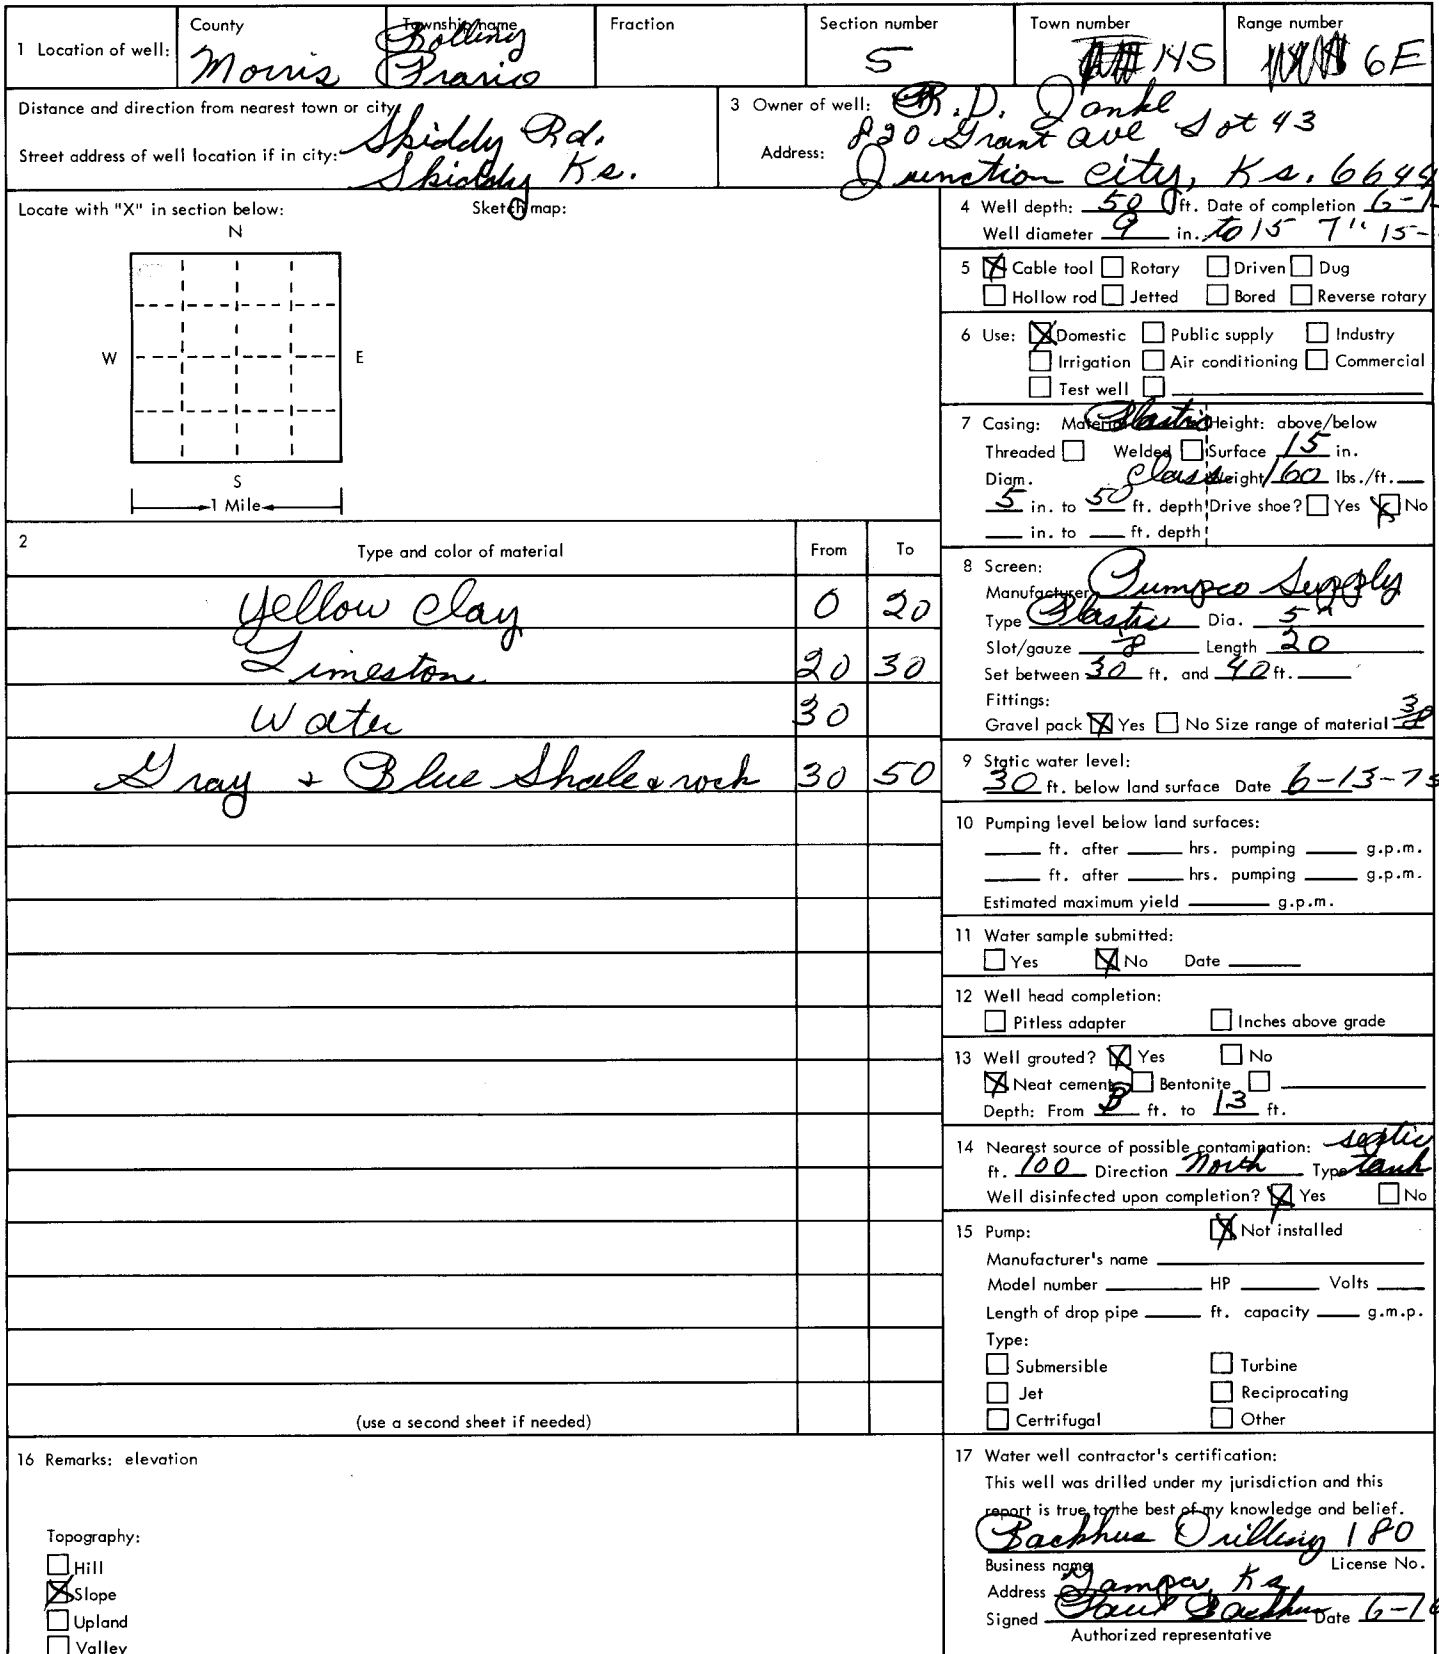 1 Location of well:
County
Morris
Township name
Rolling
Prarie
Fraction
Section number
5
Town number
14S
Range number
6E
Distance and direction from nearest town or city:
Skiddy Rd.
Street address of well location if in city:
Skiddy Ks.
3 Owner of well: R.D. Janke
Address: 820 Grant ave Lot 43
Junction City, Ks. 6644
Locate with "X" in section below:
Sketch map:
N
W E
S
1 Mile
4 Well depth: 50 ft. Date of completion 6-1
Well diameter 9 in. to 15 7" 15-
5 ☒ Cable tool ☐ Rotary ☐ Driven ☐ Dug
☐ Hollow rod ☐ Jetted ☐ Bored ☐ Reverse rotary
6 Use: ☒ Domestic ☐ Public supply ☐ Industry
☐ Irrigation ☐ Air conditioning ☐ Commercial
☐ Test well ☐
7 Casing: Material Plastic Height: above/below
Threaded ☐ Welded ☐ Surface 15 in.
Diam. Class Weight 160 lbs./ft.
5 in. to 50 ft. depth Drive shoe? ☐ Yes ☒ No
in. to ft. depth
2
Type and color of material From To
Yellow Clay 0 20
Limestone 20 30
Water 30
Gray & Blue Shale & rock 30 50
(use a second sheet if needed)
8 Screen:
Manufacturer Pumpco Supply
Type Plastic Dia. 5"
Slot/gauze 8 Length 20
Set between 30 ft. and 40 ft.
Fittings:
Gravel pack ☒ Yes ☐ No Size range of material
9 Static water level:
30 ft. below land surface Date 6-13-75
10 Pumping level below land surfaces:
ft. after hrs. pumping g.p.m.
ft. after hrs. pumping g.p.m.
Estimated maximum yield g.p.m.
11 Water sample submitted:
☐ Yes ☒ No Date
12 Well head completion:
☐ Pitless adapter ☐ Inches above grade
13 Well grouted? ☒ Yes ☐ No
☒ Neat cement ☐ Bentonite ☐
Depth: From 3 ft. to 13 ft.
14 Nearest source of possible contamination: septic
ft. 100 Direction North Type tank
Well disinfected upon completion? ☒ Yes ☐ No
15 Pump: ☒ Not installed
Manufacturer's name
Model number HP Volts
Length of drop pipe ft. capacity g.m.p.
Type:
☐ Submersible ☐ Turbine
☐ Jet ☐ Reciprocating
☐ Certrifugal ☐ Other
16 Remarks: elevation
Topography:
☐ Hill
☒ Slope
☐ Upland
☐ Valley
17 Water well contractor's certification:
This well was drilled under my jurisdiction and this
report is true to the best of my knowledge and belief.
Backhus Drilling 180
Business name License No.
Address Tampa, Ks
Signed Paul Backhus Date 6-16
Authorized representative